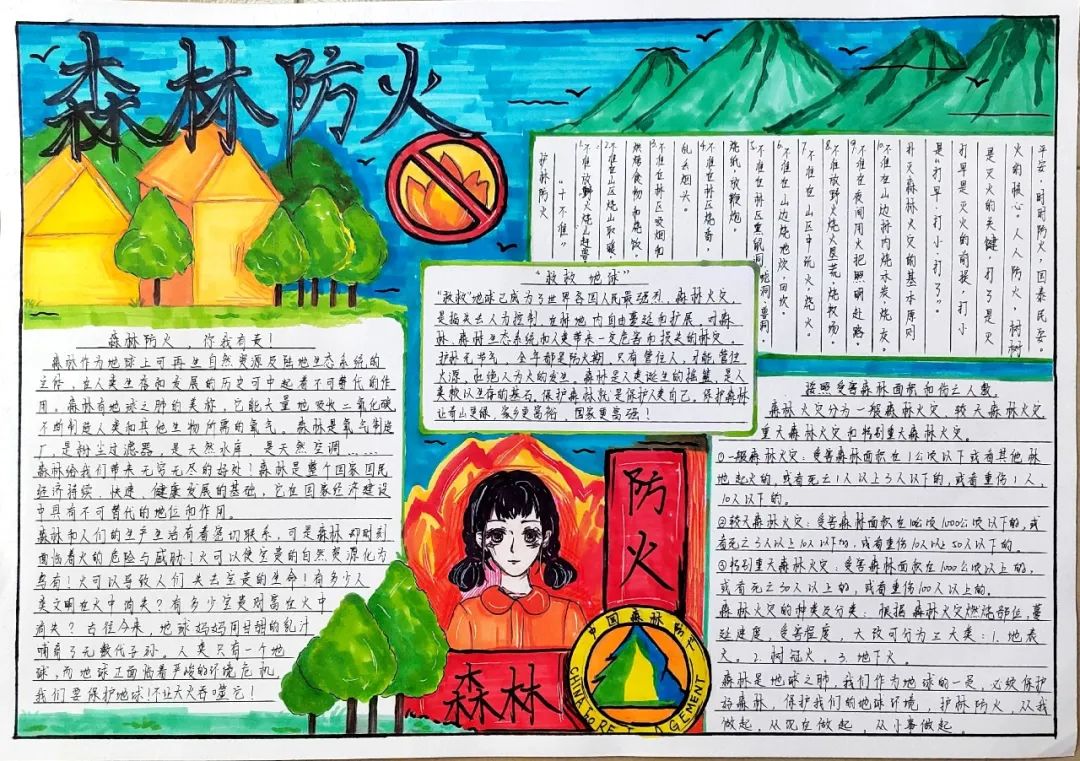 森林防火
森林防火，你我有责！
森林作为地球上可再生自然资源及陆地生态系统的
主体，在人类生存和发展的历史可中起着不可替代的作
用。森林有地球之肺的美称，它能大量地吸收二氧化碳
不断制造人类和其他生物所需的氧气。森林是氧气制造
厂，是树尘过滤器，是天然水库，是天然空调……
森林给我们带来无穷无尽的好处！森林是整个国家国民
经济持续、快速、健康发展的基础，它在国家经济建设
中具有不可替代的地位和作用。
森林和人们的生产生活有着密切联系，可是森林却时刻
面临着火的危险与威胁！火可以使宝贵的自然资源化为
乌有！火可以导致人们失去宝贵的生命！有多少人
类文明在火中消失？有多少宝贵财富在火中
消失？古往今来，地球妈妈用甘甜的乳汁
哺育了无数代子孙。人类只有一个地
球，而地球正面临着严峻的环境危机，
我们要保护地球！不让大火吞噬它！
平安，时时防火，国泰民安。
火的核心。人人防火，树树
是灭火的关键，打了是灭
打早是灭火的前提，打小
是“打早、打小、打了”。
扑灭森林火灾的基本原则
10.不准在山边林内烧水炭烧灰
9.不准在夜间用火把照明赶路
8.不准放野火烧火垦荒烧牧场。
7.不准在山区中玩火、烧火。
6.不准在山边烧地坎、田坎。
5.不准在林区熏鼠洞、蛇洞、兽洞。
烧纸，放鞭炮。
4.不准在林区烧香，
乱丢烟头。
3.不准在林区吸烟和
烘烤食物和烧饭。
2.不准在山区烧山取暖，
1.不准放野火烧山赶兽
“十不准”
护林防火
“救救地球”
“救救”地球已成为了世界各国人民最强烈，森林火灾，
是指失去人为控制，在林地内自由蔓延和扩展，对森
林、森林生态系统和人类带来一定危害和损失的林火。
护林无节气，全年都是防火期，只有管住人，才能管住
火源，杜绝人为火的发生。森林是人类诞生的摇篮，是人
类赖以生存的基石，保护森林就是保护人类自己。保护森林
让青山更绿，家乡更富裕，国家更富强！
按照受害森林面积和伤亡人数，
森林火灾分为一般森林火灾，较大森林火灾
重大森林火灾和特别重大森林火灾。
①一般森林火灾：受害森林面积在1公顷以下或者其他林
地起火的，或者死亡1人以上3人以下的，或者重伤1人，
10人以下的。
②较大森林火灾：受害森林面积在1公顷1000公顷以下的，或
者死亡3人以上10人以下的，或者重伤10人以上50人以下的。
③特别重大森林火灾：受害森林面积在1000公顷以上的，
或者死亡30人以上的，或者重伤100人以上的。
森林火灾的种类及分类：根据森林火灾燃烧部位，蔓
延速度，受害程度，大致可分为三大类：1.地表
火，2.树冠火，3.地下火。
森林是地球之肺，我们作为地球的一员，必须保护
好森林，保护我们的地球环境，护林防火，从我
做起，从现在做起，从小事做起。
防火
森林
中国森林防火
CHINA FOREST